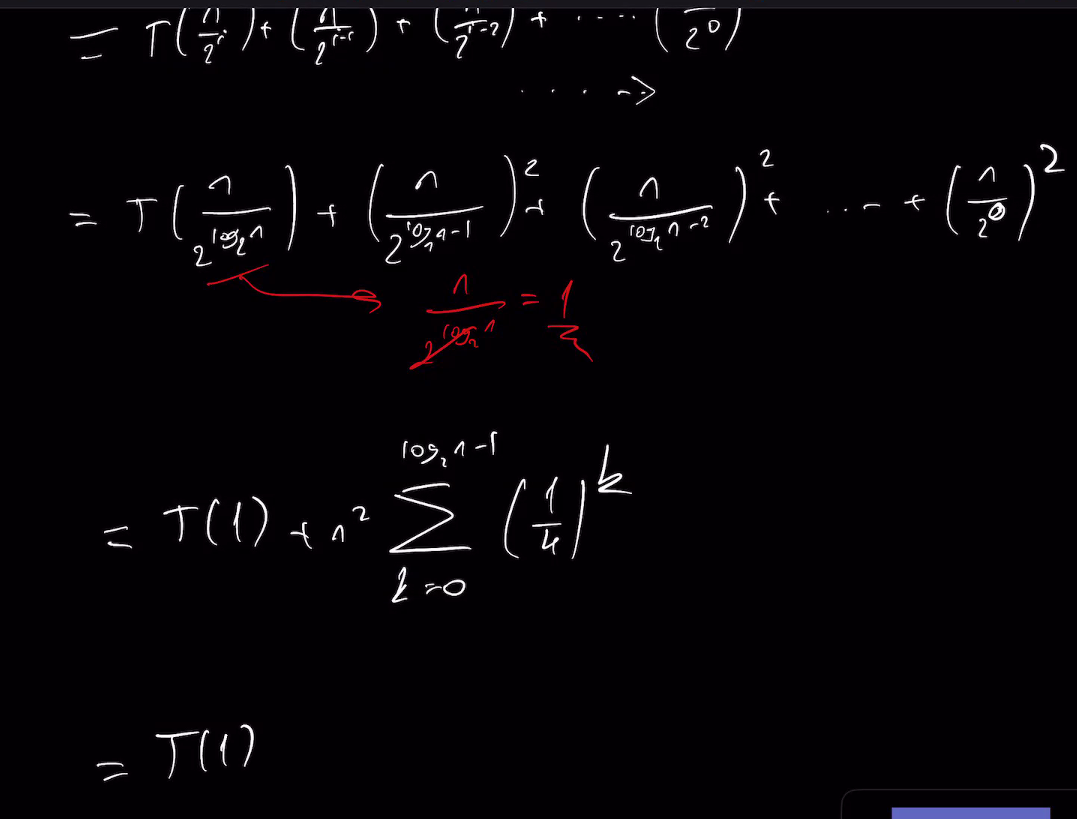 = T(n/2^i) + (n/2^(i-1)) + (n/2^(i-2)) + ..... (n/2^0)
.... ->
= T(n/2^(log₂n)) + (n/2^(log₂n-1))² + (n/2^(log₂n-2))² + ... + (n/2^0)²
n/2^(log₂n) = 1
= T(1) + n² Σ_{k=0}^{log₂n-1} (1/4)^k
= T(1)